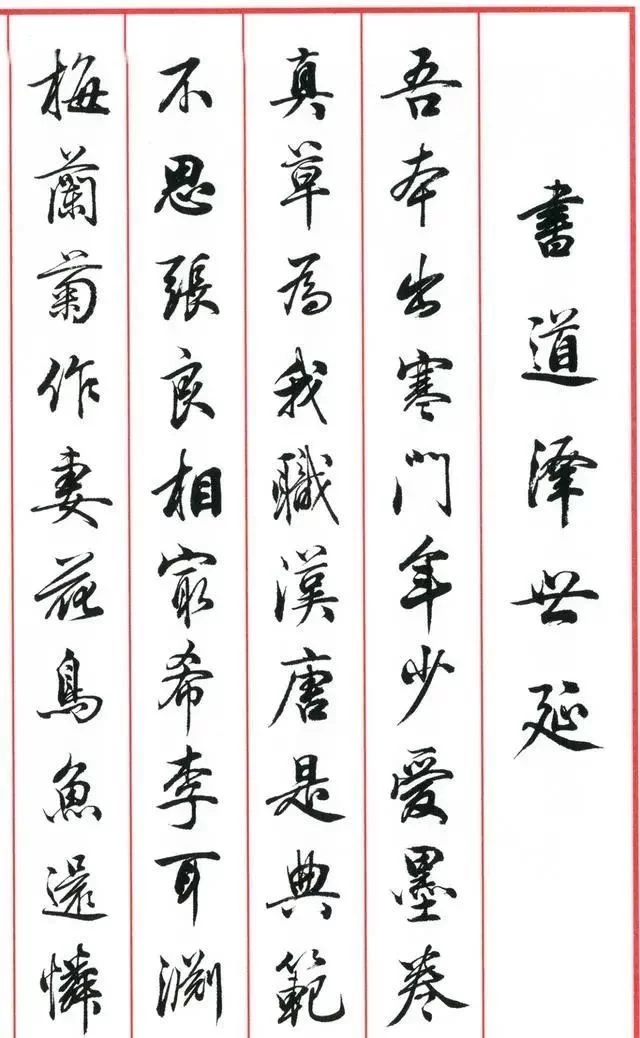 書道澤世延
吾本出寒門年少愛墨卷
真草為我職漢唐是典範
不思張良相最希李耳淵
梅蘭菊作妻花鳥魚還憐